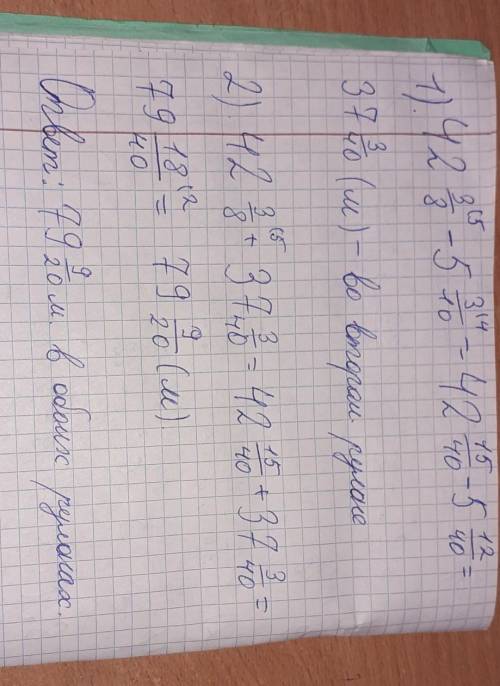 1). 42 3/8 |5 - 5 3/10 |4 = 42 15/40 - 5 12/40 =
37 3/40 (м) - во втором рулоне
2). 42 3/8 |5 + 37 3/40 = 42 15/40 + 37 3/40 =
79 18/40 |2 = 79 9/20 (м)
Ответ: 79 9/20 м. в обоих рулонах.